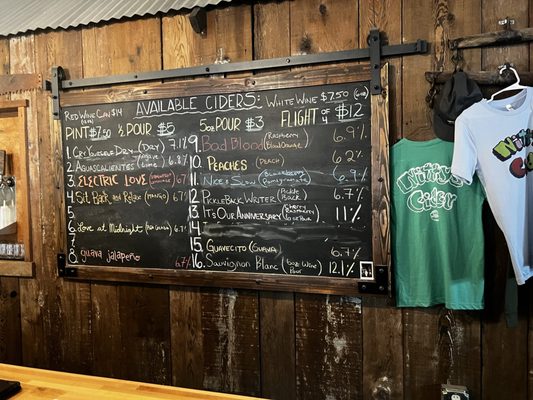 Red Wine Can $14
AVAILABLE CIDERS:
White Wine $7.50
PINT $7.50 ½ POUR $5
5oz POUR $3
FLIGHT OF 4 $12
1. Cry Yourself Dry (DRY) 7.1%
2. Aguascalientes (Agave Lime) 6.8%
3. ELECTRIC LOVE 6.7
4. Sit Back and Relax (MANGO) 6.7%
5.
6. Love at Midnight 6.7%
7.
8. guava jalapeño 6.7%
9. Bad Blood (Raspberry Blood Orange) 6.9%
10. PEACHES (PEACH) 6.2%
11. Nice & Slow (Blueberry Pomegranate) 6.9%
12. PICKLEBACK WRITER (Pickle Back) 6.7%
13. It's Our Anniversary (Cherry Raspberry) 11%
14.
15. Guavecito (Guava) 6.7%
16. Sauvignon Blanc (5oz Wine Pour) 12.1%
Cider